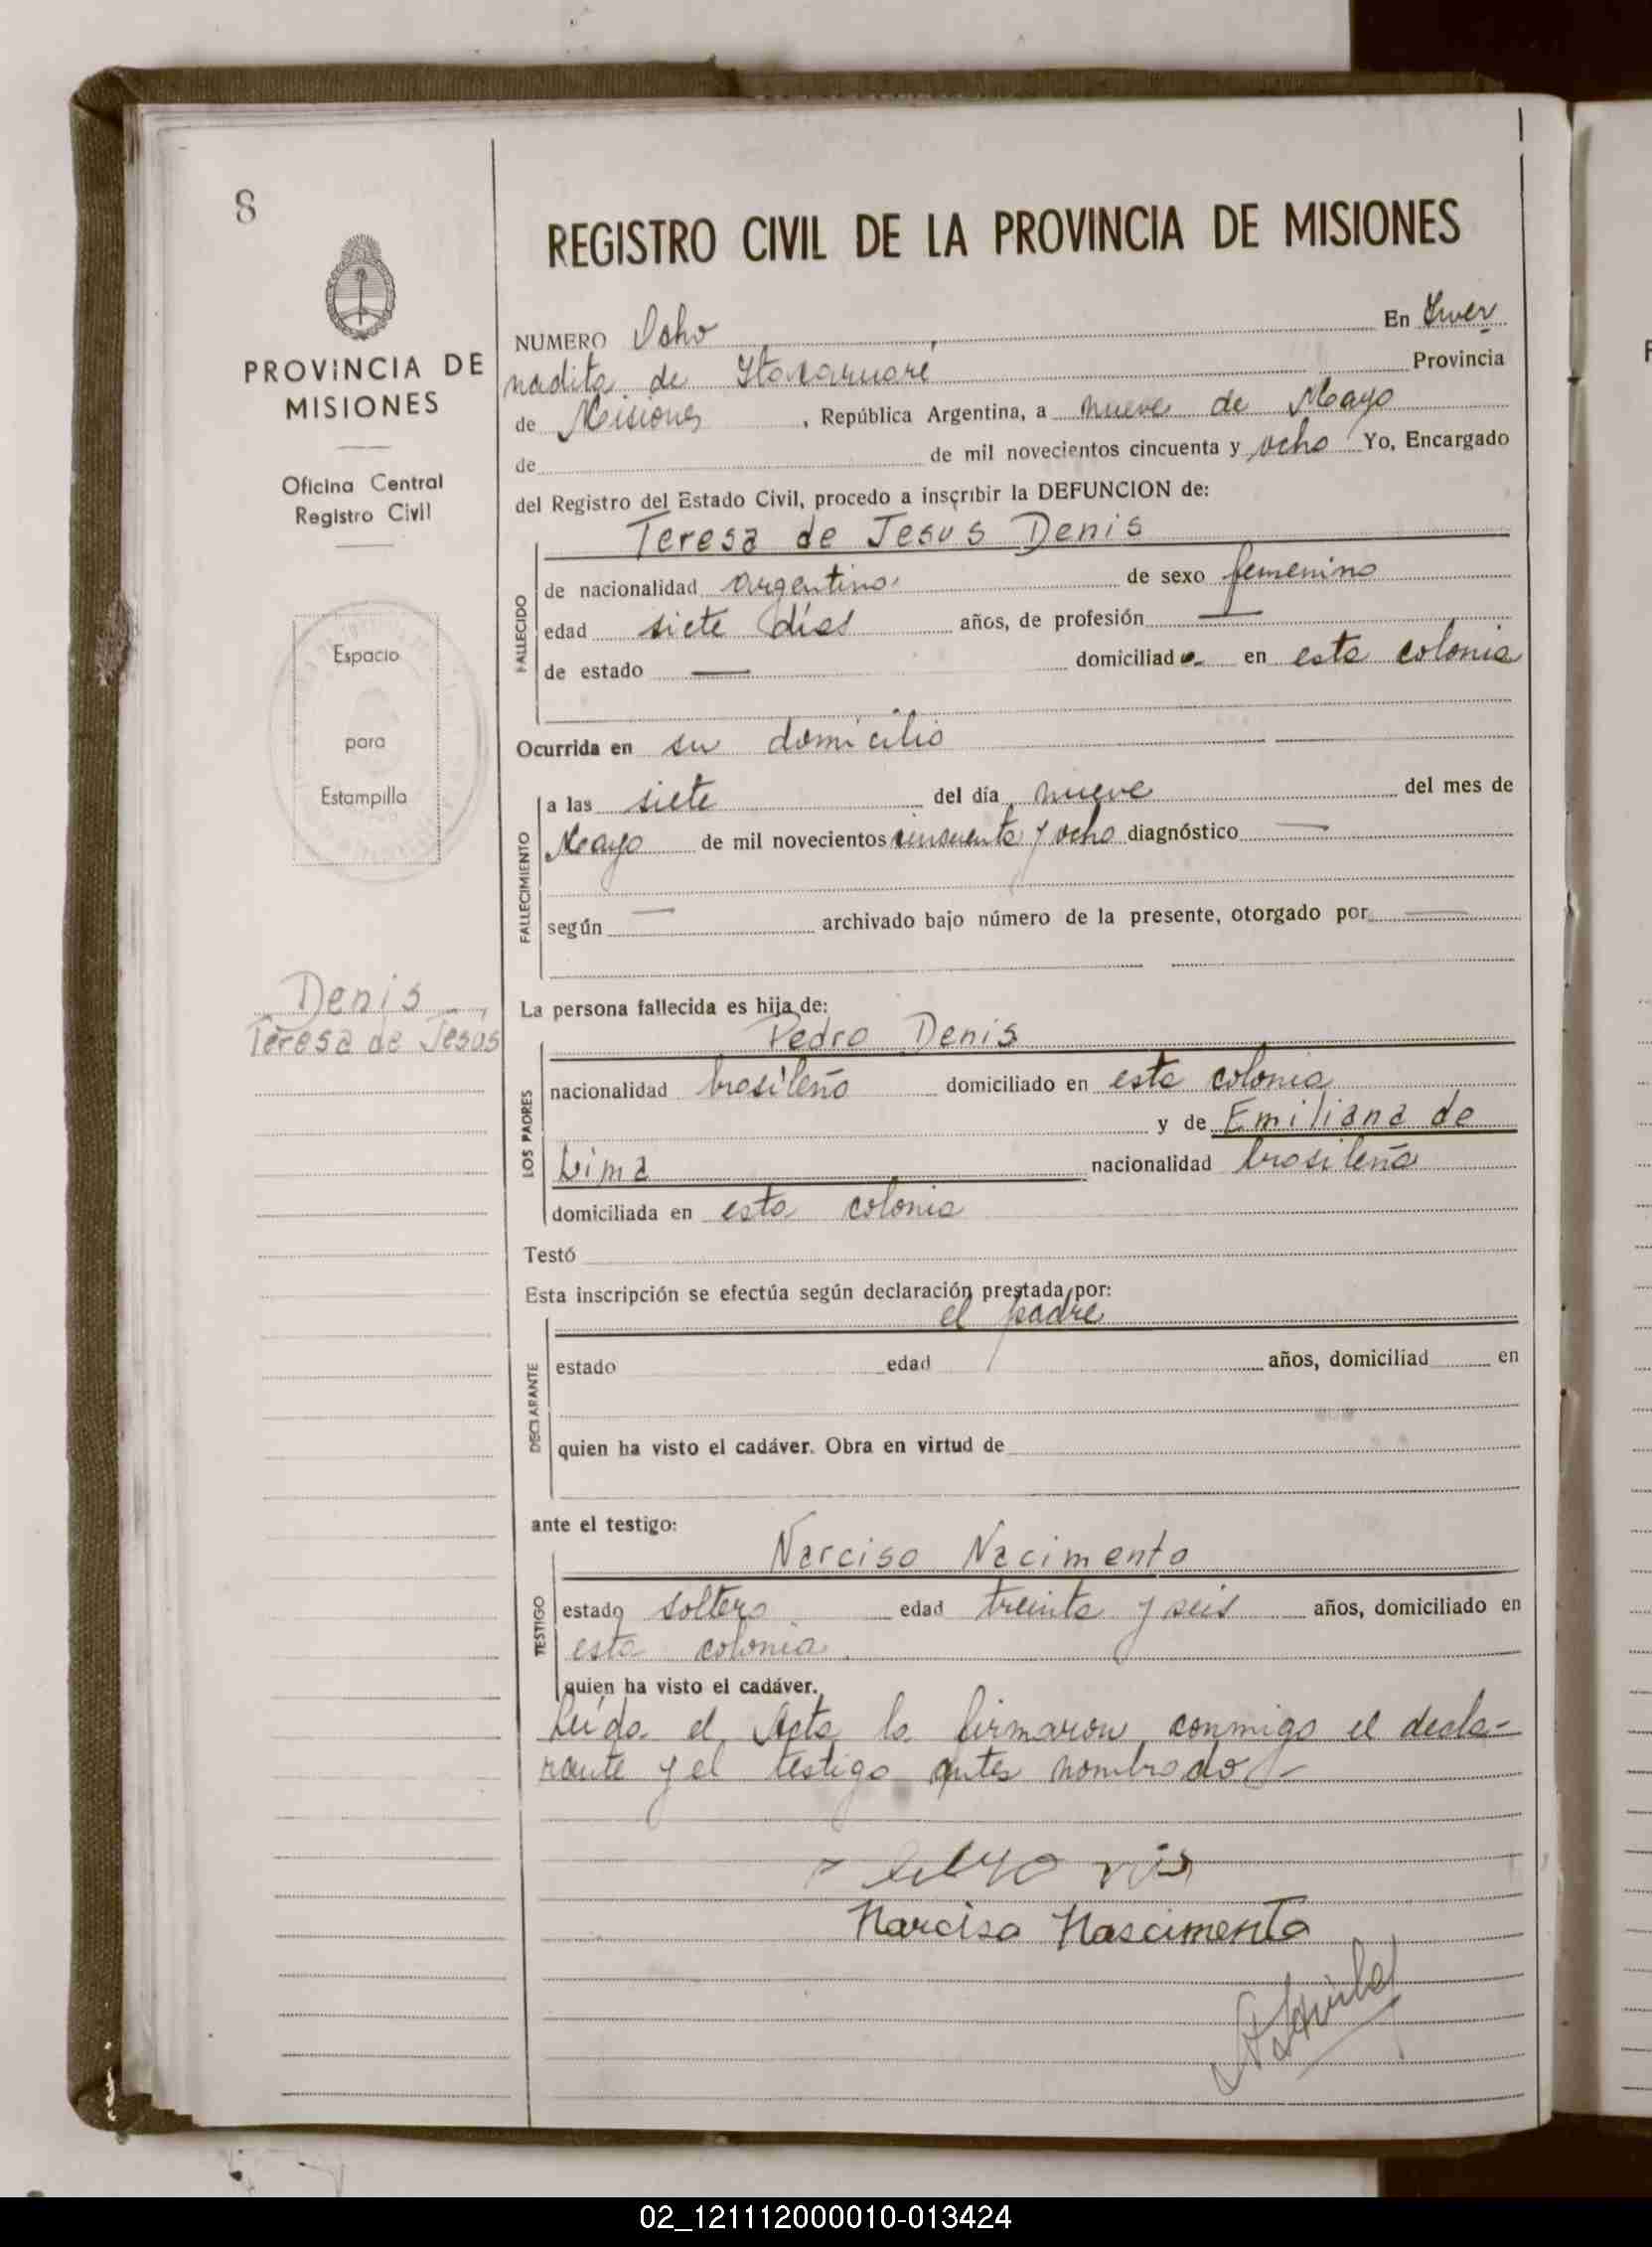 8
REGISTRO CIVIL DE LA PROVINCIA DE MISIONES
PROVINCIA DE
MISIONES
Oficina Central
Registro Civil
Espacio
para
Estampilla
Denis
Teresa de Jesús
NUMERO Ocho En Inver
nadita de Itacaruaré Provincia
de Misiones , República Argentina, a nueve de Mayo
de de mil novecientos cincuenta y ocho Yo, Encargado
del Registro del Estado Civil, procedo a inscribir la DEFUNCION de:
Teresa de Jesus Denis
FALLECIDO
de nacionalidad argentina de sexo femenino
edad siete días años, de profesión —
de estado — domiciliada en esta colonia
Ocurrida en su domicilio
FALLECIMIENTO
a las siete del día nueve del mes de
Mayo de mil novecientos cincuenta y ocho diagnóstico —
según — archivado bajo número de la presente, otorgado por —
La persona fallecida es hija de:
Pedro Denis
LOS PADRES
nacionalidad brasileño domiciliado en esta colonia
y de Emiliana de
Lima nacionalidad brasileña
domiciliada en esta colonia
Testó
Esta inscripción se efectúa según declaración prestada por:
el padre
DECLARANTE
estado edad años, domiciliad en
quien ha visto el cadáver. Obra en virtud de
ante el testigo:
Narciso Nacimento
TESTIGO
estado soltero edad treinta y seis años, domiciliado en
esta colonia.
quien ha visto el cadáver.
Leída el Acta la firmaron conmigo el decla-
rante y el testigo antes nombrado.-
Narciso Nascimento
02_121112000010-013424